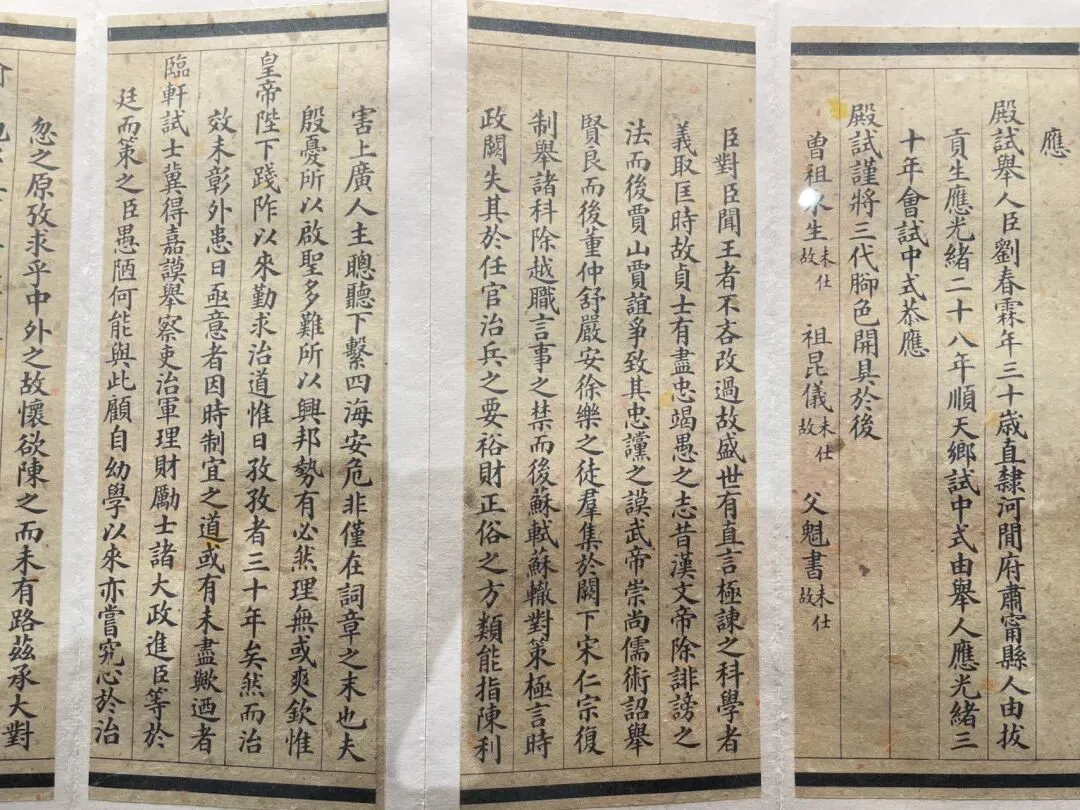 應
殿試舉人臣劉春霖年三十歲直隸河間府肅甯縣人由拔
貢生應光緒二十八年順天鄉試中式由舉人應光緒三
十年會試中式恭應
殿試謹將三代腳色開具於後
曾祖 生未仕故 祖昆儀未仕故 父魁書未仕故
臣對臣聞王者不吝改過故盛世有直言極諫之科學者
義取匡時故貞士有盡忠竭愚之志昔漢文帝除誹謗之
法而後賈山賈誼爭致其忠讜之謨武帝崇尚儒術詔舉
賢良而後董仲舒嚴安徐樂之徒羣集於闕下宋仁宗復
制舉諸科除越職言事之禁而後蘇軾蘇轍對策極言時
政闕失其於任官治兵之要裕財正俗之方類能指陳利
害上廣人主聰聽下繫四海安危非僅在詞章之末也夫
殷憂所以啟聖多難所以興邦勢有必然理無或爽欽惟
皇帝陛下踐阼以來勤求治道惟日孜孜者三十年矣然而治
效未彰外患日亟意者因時制宜之道或有未盡歟迺者
臨軒試士冀得嘉謨舉察吏治軍理財勵士諸大政進臣等於
廷而策之臣愚陋何能與此顧自幼學以來亦嘗究心於治
忽之原攷求乎中外之故懷欲陳之而未有路茲承大對